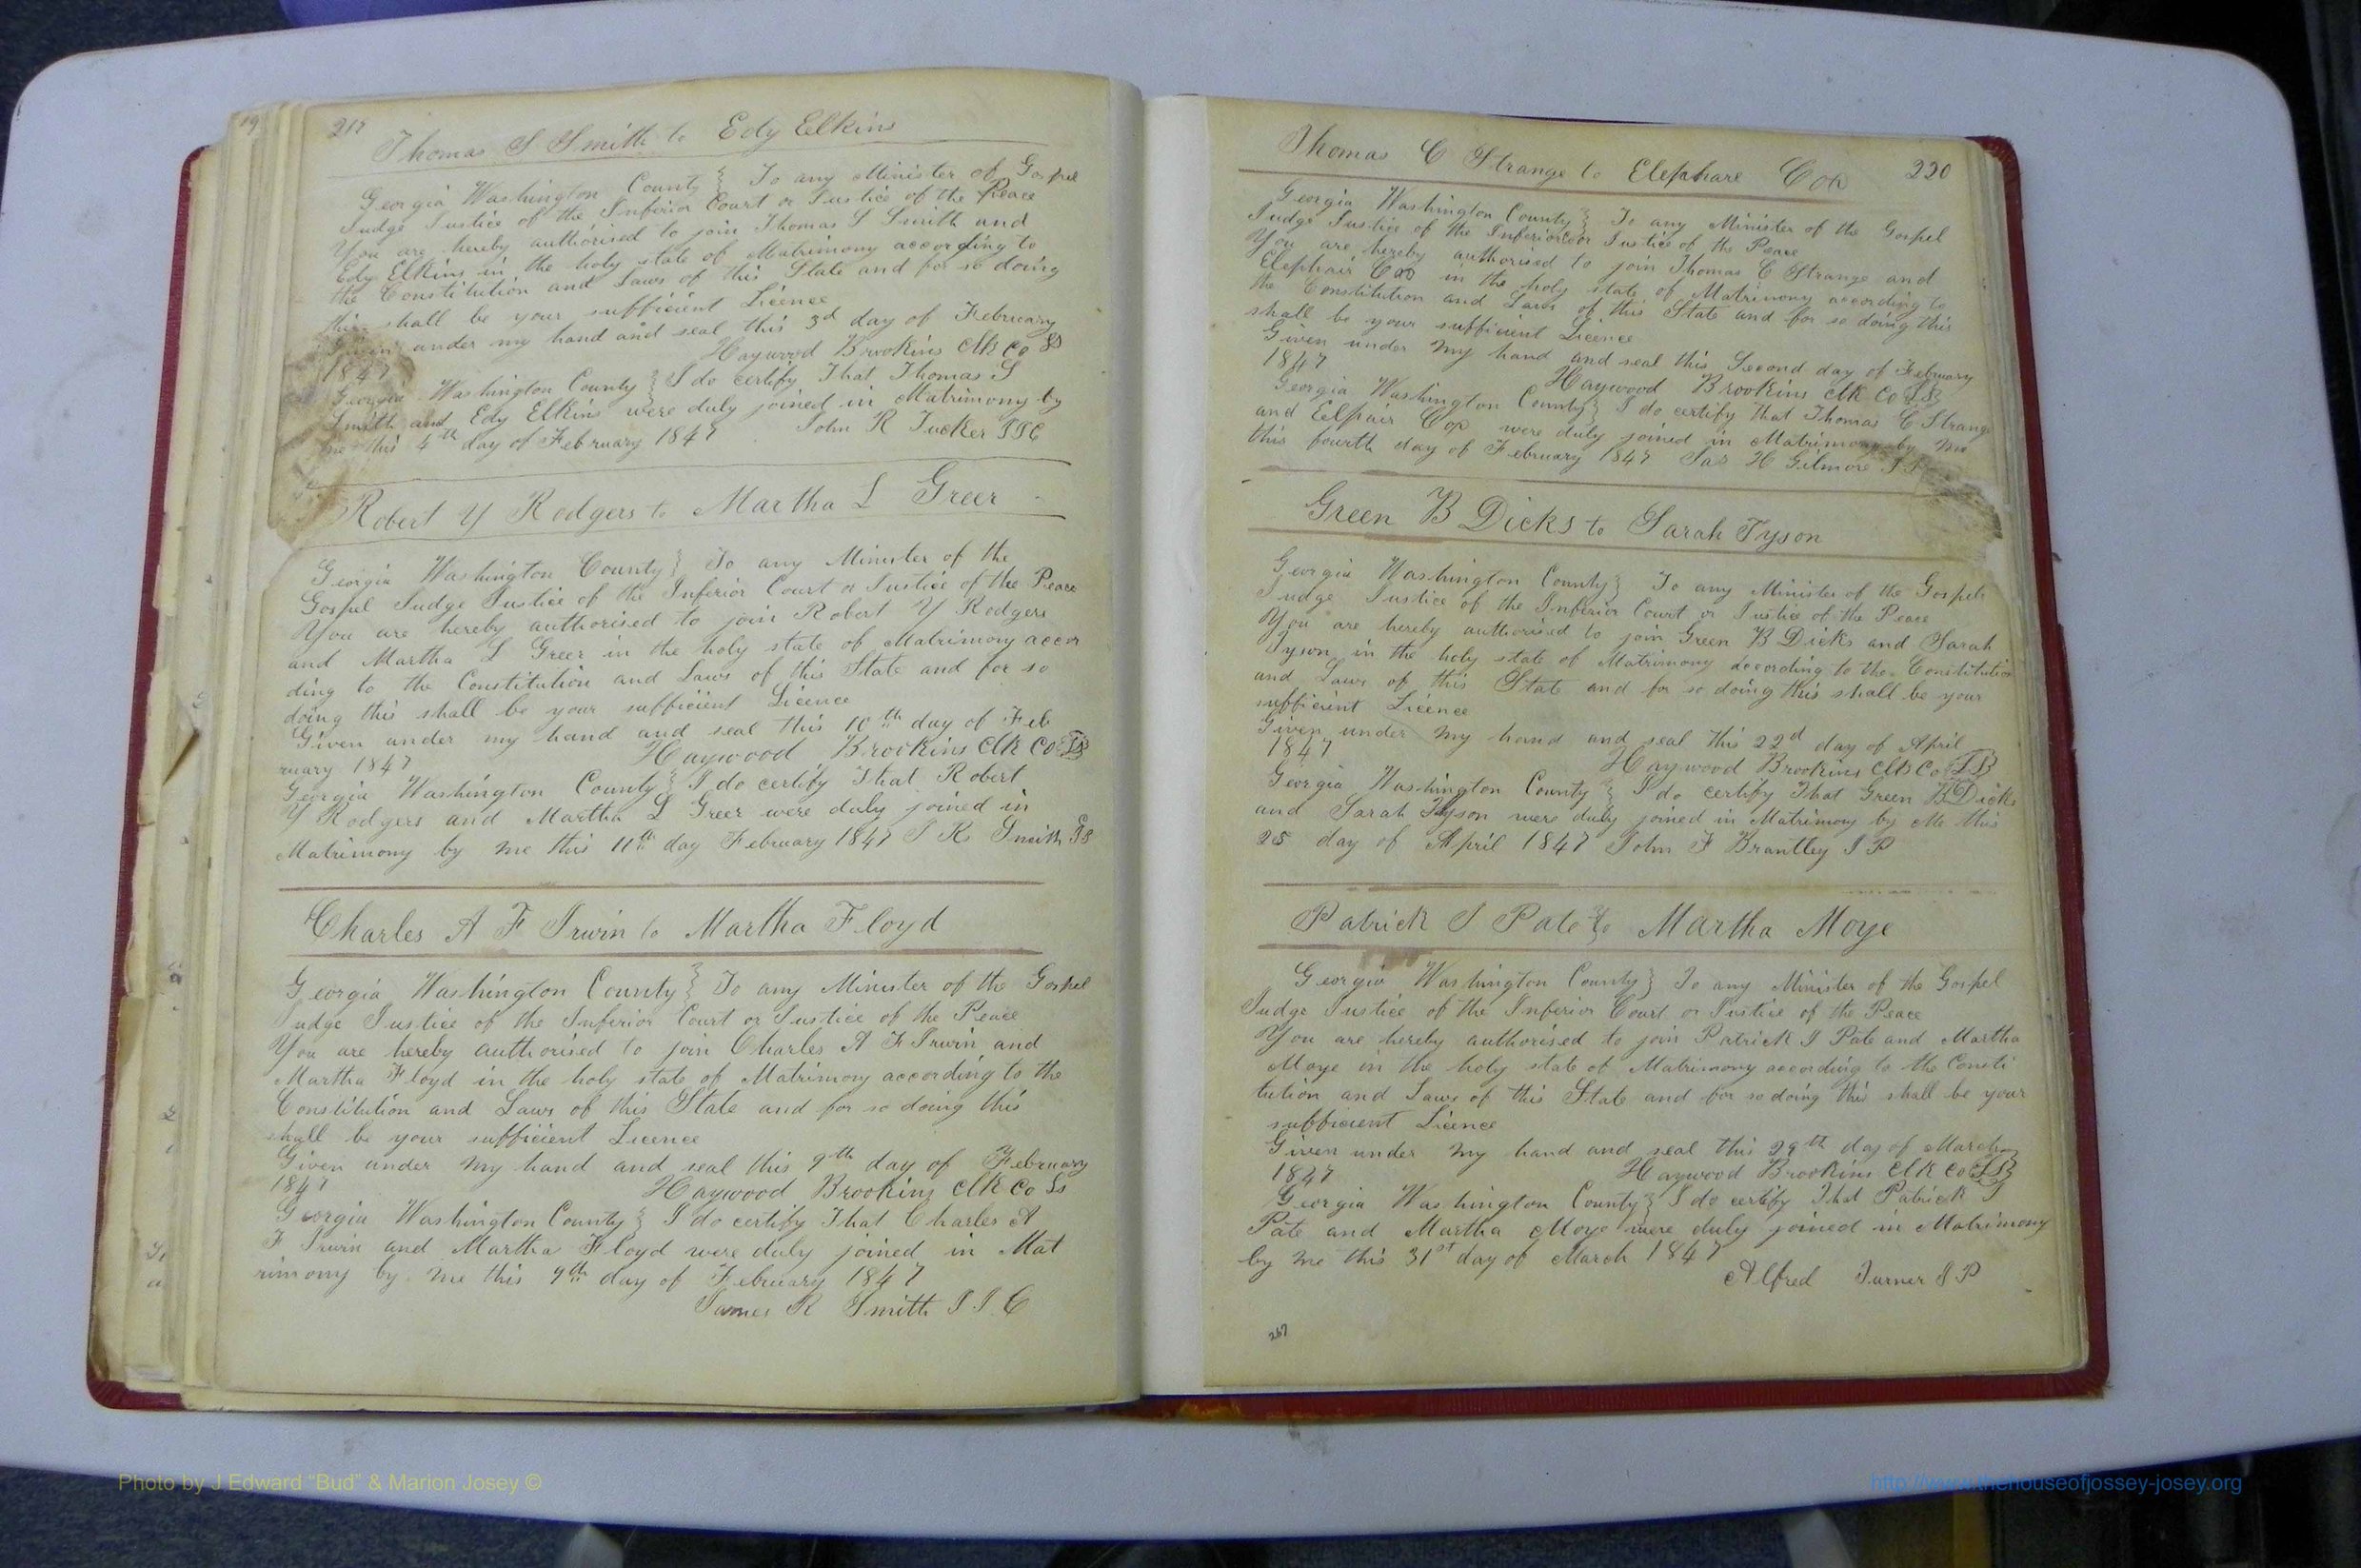 217
Thomas S Smith to Edy Elkins
Georgia Washington County } To any Minister of Gospel
Judge Justice of the Inferior Court or Justice of the Peace
You are hereby authorised to join Thomas S Smith and
Edy Elkins in the holy state of Matrimony according to
the Constitution and Laws of this State and for so doing
this shall be your sufficient Licence
Given under my hand and seal this 3d day of February
1847 Haywood Brookins Clk Co
Georgia Washington County } I do certify That Thomas S
Smith and Edy Elkins were duly joined in Matrimony by
me this 4th day of February 1847 John R Tucker JJC
Robert Y Rodgers to Martha L Greer
Georgia Washington County } To any Minister of the
Gospel Judge Justice of the Inferior Court or Justice of the Peace
You are hereby authorised to join Robert Y Rodgers
and Martha L Greer in the holy state of Matrimony accor
ding to the Constitution and Laws of this State and for so
doing this shall be your sufficient Licence
Given under my hand and seal this 10th day of Feb
ruary 1847 Haywood Brookins Clk Co LS
Georgia Washington County } I do certify That Robert
Y Rodgers and Martha L Greer were duly joined in
Matrimony by me this 11th day February 1847 J R Smith
Charles A F Irwin to Martha Floyd
Georgia Washington County } To any Minister of the Gospel
Judge Justice of the Inferior Court or Justice of the Peace
You are hereby authorised to join Charles A F Irwin and
Martha Floyd in the holy state of Matrimony according to the
Constitution and Laws of this State and for so doing this
shall be your sufficient Licence
Given under my hand and seal this 9th day of February
1847 Haywood Brookins Clk Co Ls
Georgia Washington County } I do certify That Charles A
F Irwin and Martha Floyd were duly joined in Mat
rimony by me this 9th day of February 1847
James R Smith J I C
Thomas C Strange to Elephare Cop 220
Georgia Washington County } To any Minister of the Gospel
Judge Justice of the Inferior Co or Justice of the Peace
You are hereby authorised to join Thomas C Strange and
Elephair Cop in the holy state of Matrimony according to
the Constitution and Laws of this State and for so doing this
shall be your sufficient Licence
Given under my hand and seal this Second day of February
1847 Haywood Brookins Clk Co LS
Georgia Washington County } I do certify That Thomas C Strange
and Elpair Cop were duly joined in Matrimony by me
this fourth day of February 1847 Jas H Gilmore J P
Green B Dicks to Sarah Tyson
Georgia Washington County } To any Minister of the Gospel
Judge Justice of the Inferior Court or Justice of the Peace
You are hereby authorised to join Green B Dicks and Sarah
Tyson in the holy state of Matrimony according to the Constitution
and Laws of this State and for so doing this shall be your
sufficient Licence
Given under my hand and seal this 22d day of April
1847 Haywood Brookins Clk Co LS
Georgia Washington County } I do certify That Green B Dicks
and Sarah Tyson were duly joined in Matrimony by Me this
25 day of April 1847 John F Brantley J P
Patrick J Pate to Martha Moye
Georgia Washington County } To any Minister of the Gospel
Judge Justice of the Inferior Court or Justice of the Peace
You are hereby authorised to join Patrick J Pate and Martha
Moye in the holy state of Matrimony according to the Consti
tution and Laws of this State and for so doing this shall be your
sufficient Licence
Given under my hand and seal this 29th day of March
1847 Haywood Brookins Clk Co LS
Georgia Washington County } I do certify That Patrick J
Pate and Martha Moye were duly joined in Matrimony
by me this 31st day of March 1847
Alfred Turner J P
267
Photo by J Edward “Bud” & Marion Josey ©
http://www.thehouseofjossey-josey.org